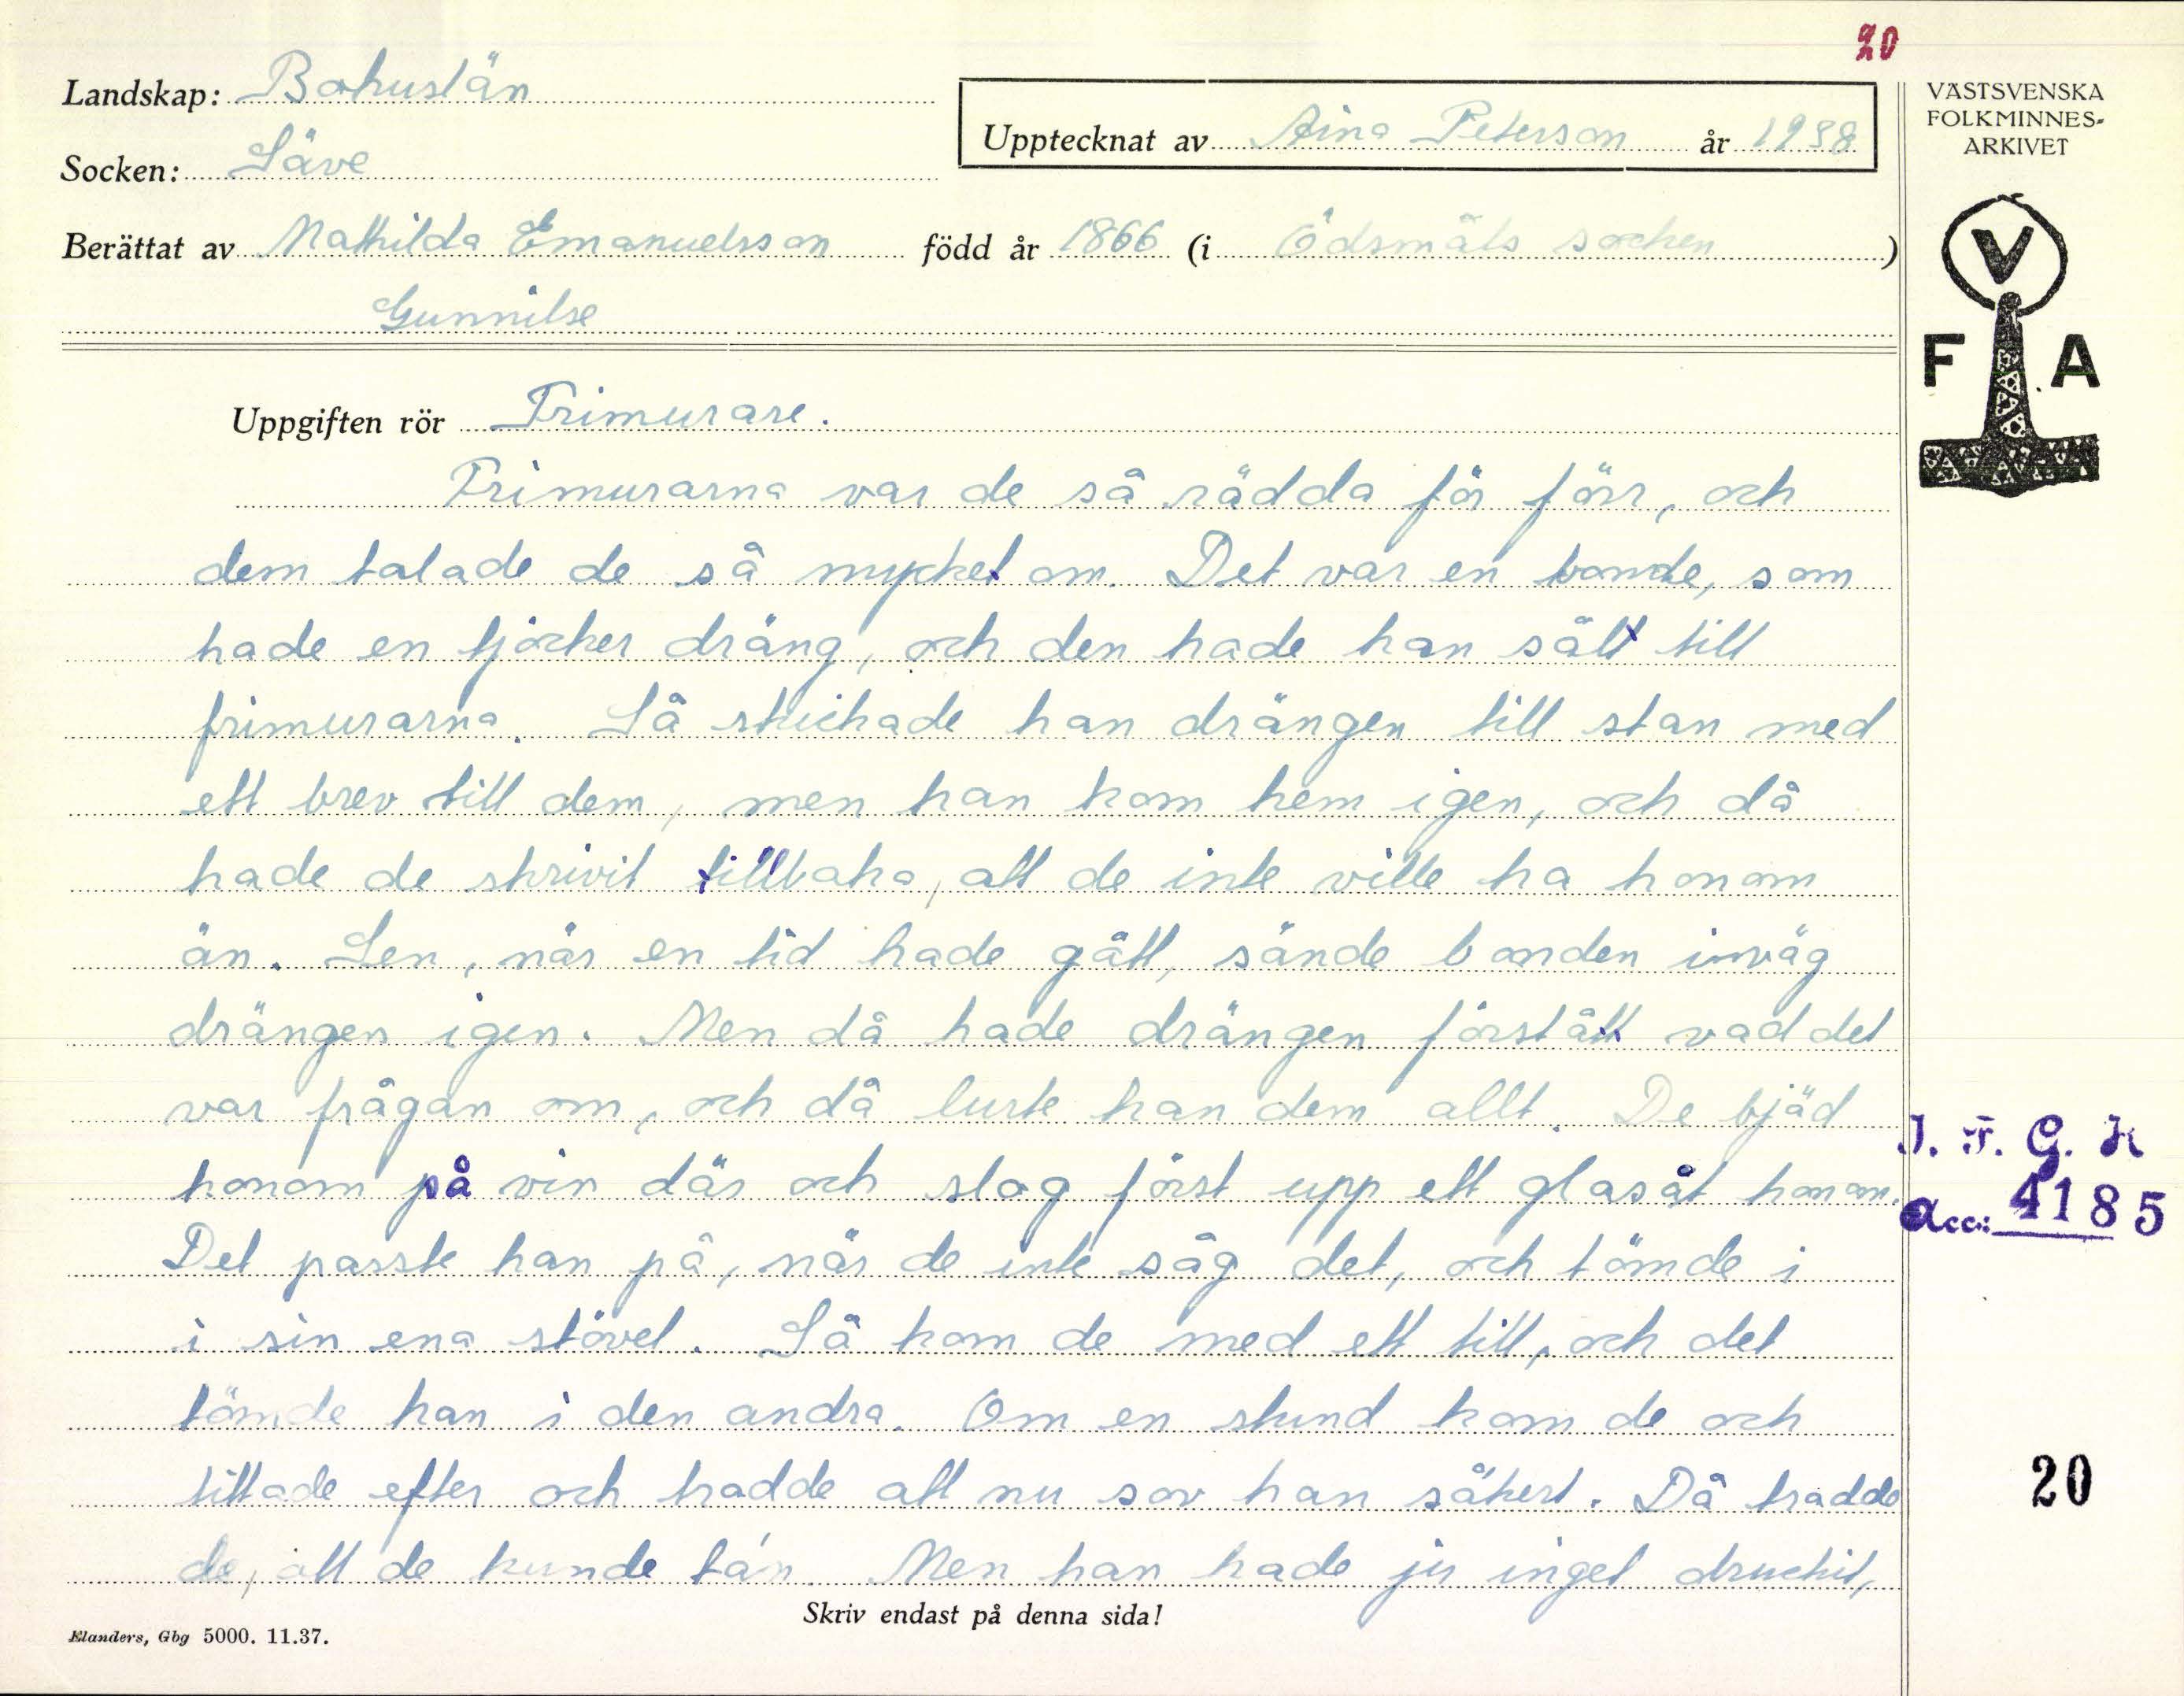 20
Landskap: Bohuslän
Upptecknat av Aina Peterson år 1938
VÄSTSVENSKA
FOLKMINNES-
ARKIVET
Socken: Säve
Berättat av Mathilda Emanuelsson född år 1866 (i Ödsmåls socken)
Gunnilse
V
F A
Uppgiften rör Frimurare.
Frimurarna var de så rädda för förr, och
dem talade de så mycket om. Det var en bonde, som
hade en tjocker dräng, och den hade han sålt till
frimurarna. Så skickade han drängen till stan med
ett brev till dem, men han kom hem igen, och då
hade de skrivit tillbaka, att de inte ville ha honom
än. Sen, när en tid hade gått, sände bonden iväg
drängen igen. Men då hade drängen förstått vad det
var frågan om, och då lurte han dem allt. De bjäd
honom på vin där och slog först upp ett glas åt honom.
Det passte han på, när de inte såg det, och tömde i
i sin ena stövel. Så kom de med ett till, och det
tömde han i den andra. Om en stund kom de och
tittade efter och trodde att nu sov han säkert. Då trodde
de, att de kunde ta'n. Men han hade ju inget druckit,
I. F. G. H
Acc.: 4185
20
Skriv endast på denna sida!
Elanders, Gbg 5000. 11.37.